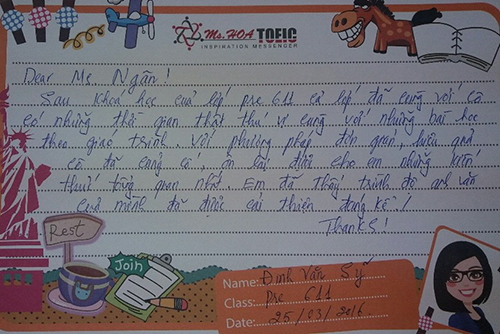 Ms. HOA TOEIC
INSPIRATION MESSENGER
Dear Ms. Ngân!
Sau khoá học của lớp pre 611 cả lớp đã cùng với cô
có những thời gian thật thú vị cùng với những bài học
theo giáo trình với phương pháp đơn giản, hiệu quả
cô đã củng cố, ôn lại, đưa cho em những kiến
thức tổng quan nhất. Em đã thấy trình độ anh văn
của mình đã được cải thiện đáng kể!
Thanks!
Rest
Join
Name: Đinh Văn Sỹ
Class: pre 611
Date: 25/03/2016